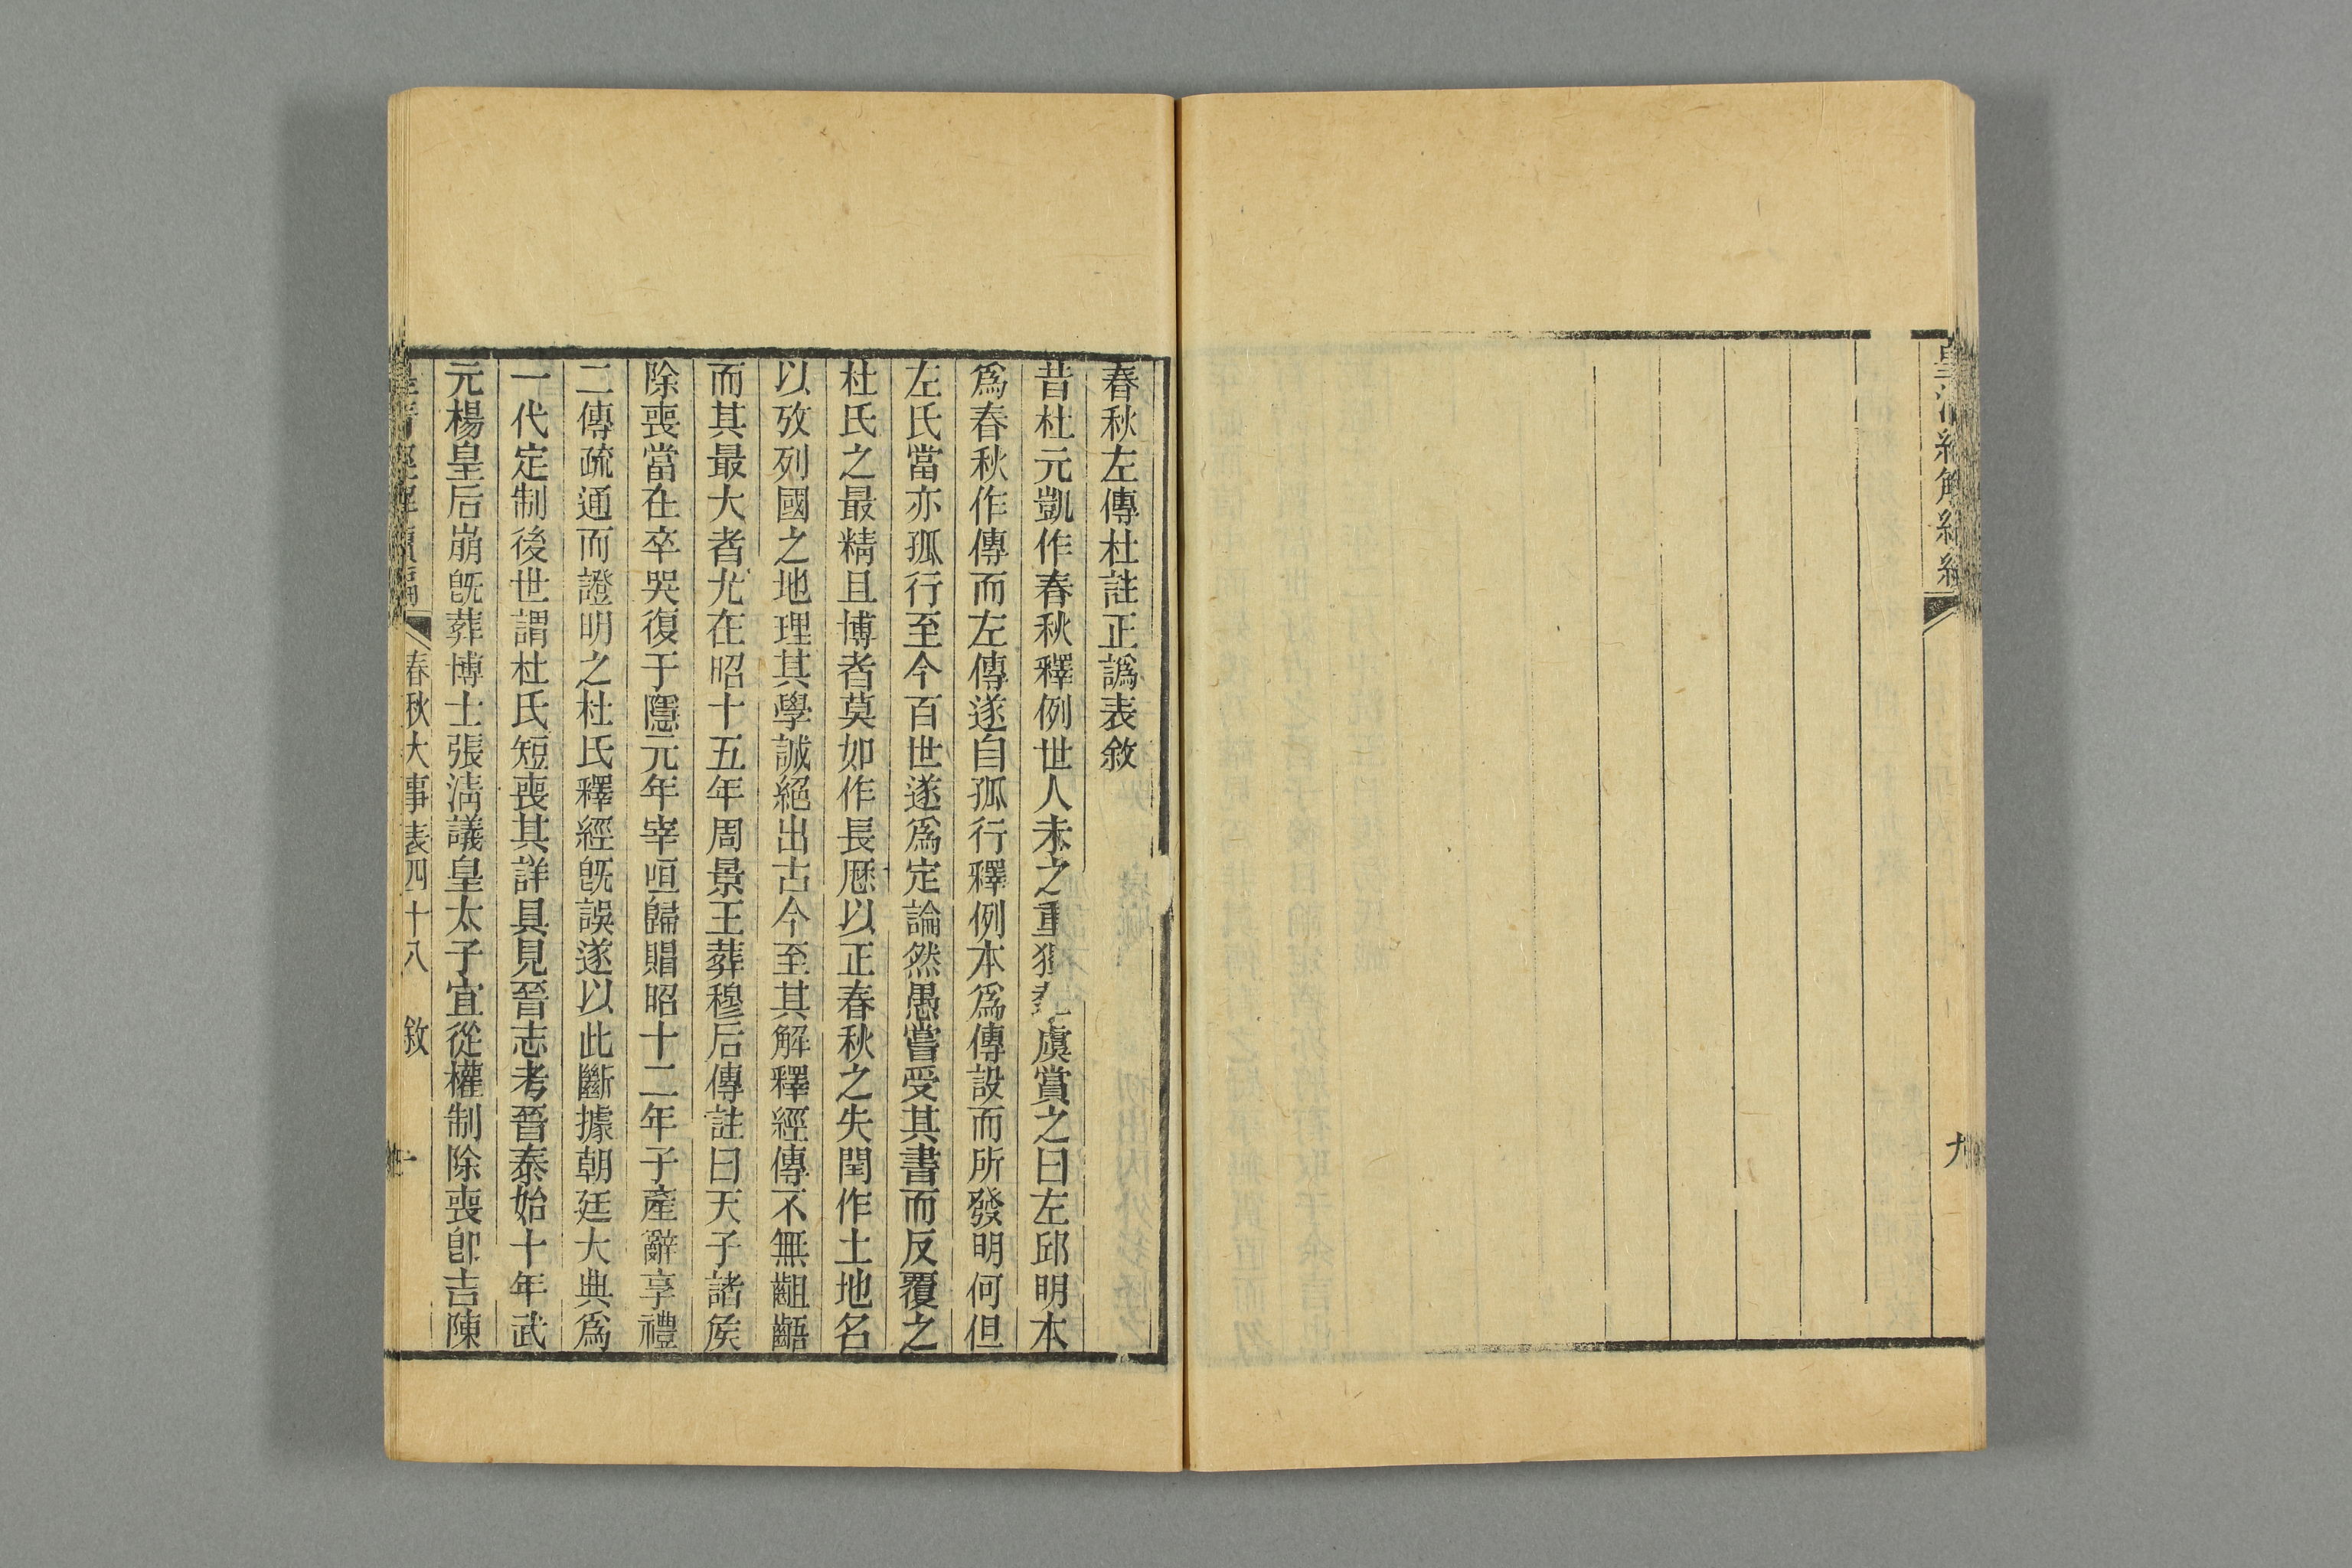 皇清經解續編
九
春秋左傳杜註正譌表敘
昔杜元凱作春秋釋例世人未之重獨摯虞賞之曰左邱明本
爲春秋作傳而左傳遂自孤行釋例本爲傳設而所發明何但
左氏當亦孤行至今百世遂爲定論然愚嘗受其書而反覆之
杜氏之最精且博者莫如作長厯以正春秋之失閏作土地名
以攷列國之地理其學誠絕出古今至其解釋經傳不無齟齬
而其最大者尤在昭十五年周景王葬穆后傳註曰天子諸矦
除喪當在卒哭復于隱元年宰咺歸賵昭十二年子產辭享禮
二傳疏通而證明之杜氏釋經旣誤遂以此斷據朝廷大典爲
一代定制後世謂杜氏短喪其詳具見晉志考晉泰始十年武
元楊皇后崩旣葬博士張淸議皇太子宜從權制除喪卽吉陳
皇清經解續編
春秋大事表四十八 敘
一